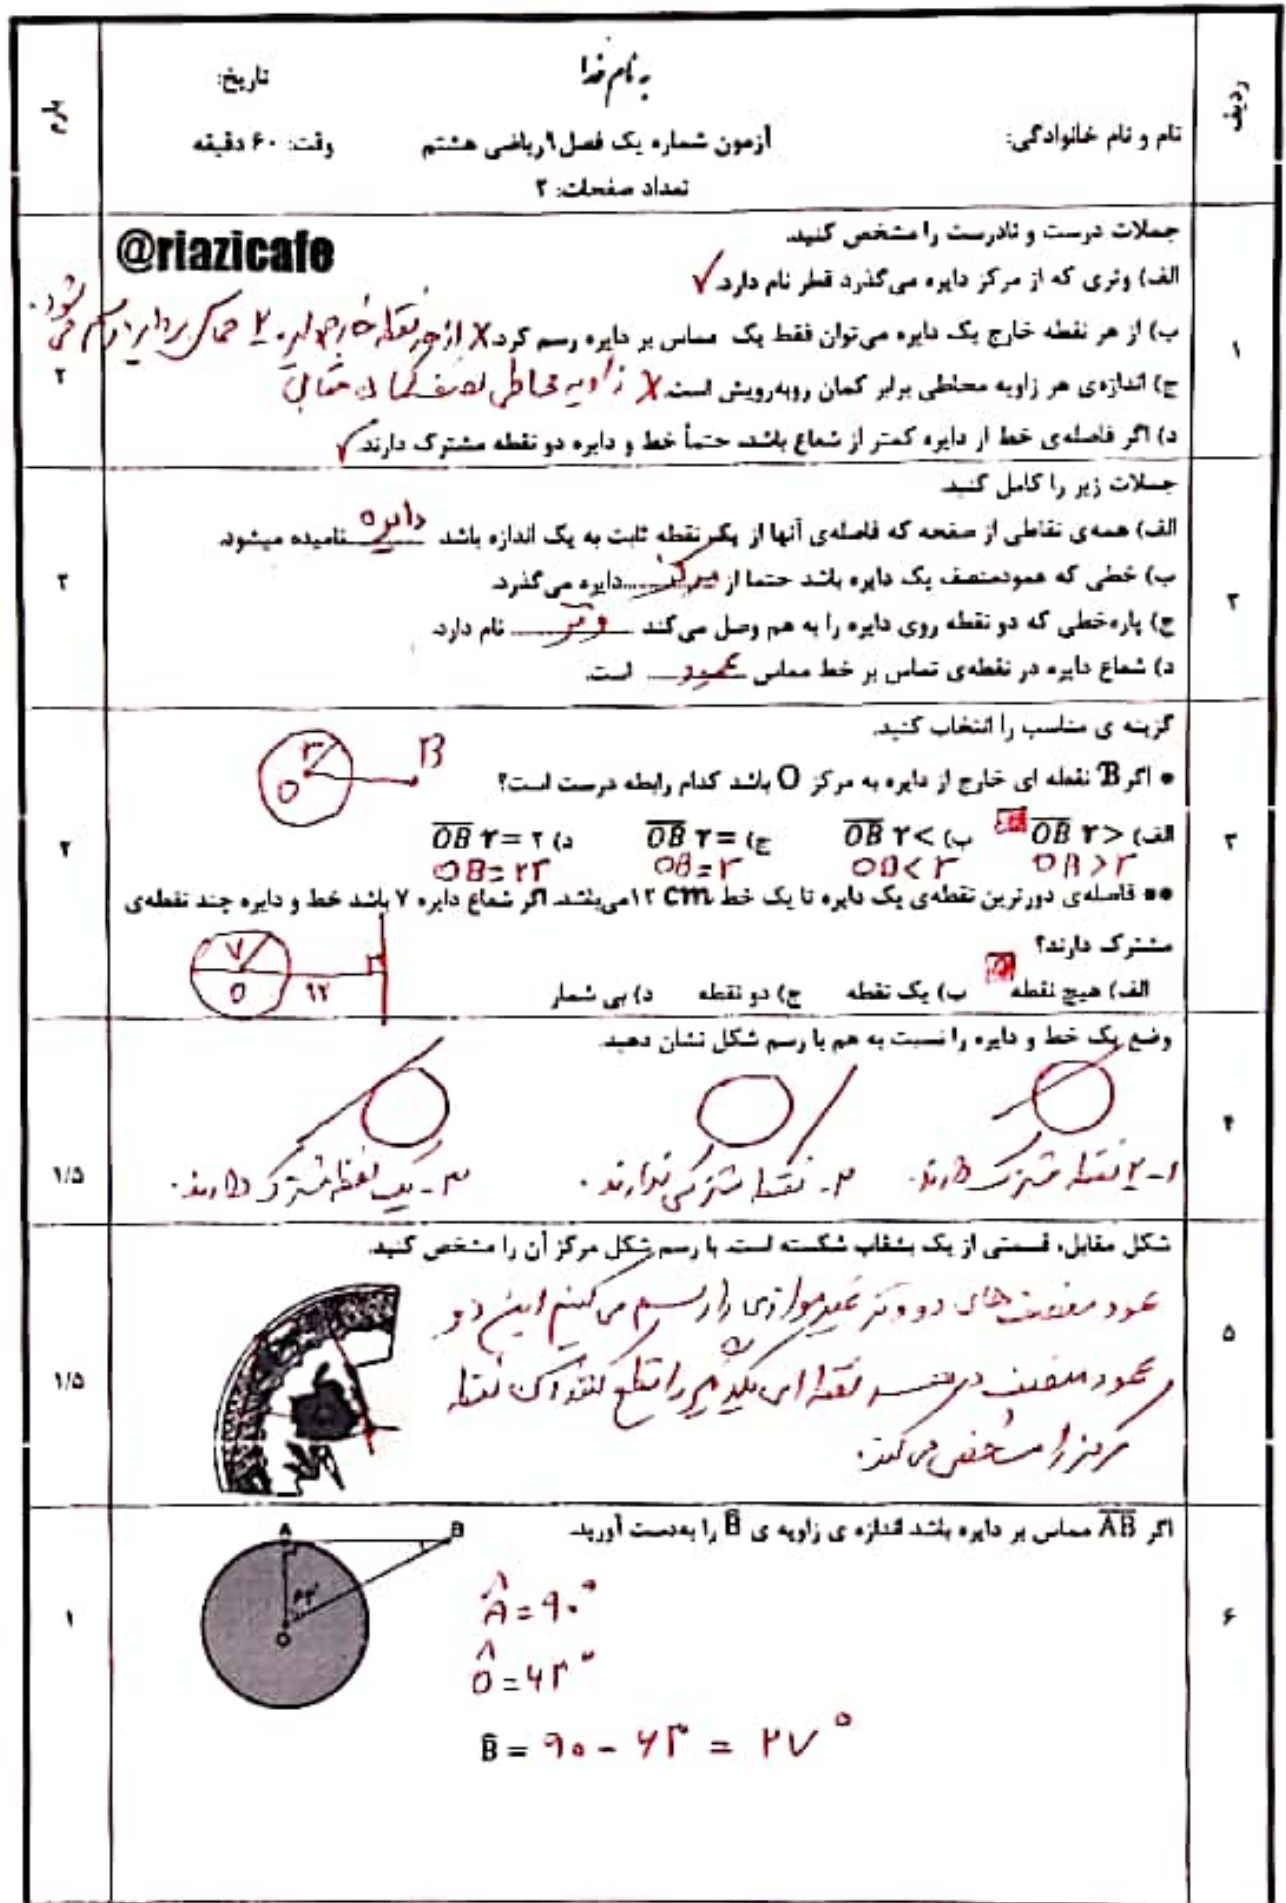 به نام خدا
ردیف
نام و نام خانوادگی:
آزمون شماره یک فصل ۹ ریاضی هشتم
تاریخ:
وقت: ۶۰ دقیقه
بارم
تعداد صفحات: ۲
@riazicafe
۱
جملات درست و نادرست را مشخص کنید.
الف) وتری که از مرکز دایره می‌گذرد قطر نام دارد. ✓
ب) از هر نقطه خارج یک دایره می‌توان فقط یک مماس بر دایره رسم کرد. X از هر نقطه خارج دایره ۲ مماس بر دایره رسم می شود.
ج) اندازه‌ی هر زاویه محاطی برابر کمان روبه‌رویش است. X زاویه محاطی نصف کمان مقابل
د) اگر فاصله‌ی خط از دایره کمتر از شعاع باشد، حتماً خط و دایره دو نقطه مشترک دارند. ✓
۲
۲
جملات زیر را کامل کنید
الف) همه‌ی نقاطی از صفحه که فاصله‌ی آنها از یک نقطه ثابت به یک اندازه باشد دایره نامیده میشود.
ب) خطی که عمودمنصف یک دایره باشد حتما از مرکز دایره می‌گذرد.
ج) پاره‌خطی که دو نقطه روی دایره را به هم وصل می‌کند وتر نام دارد.
د) شعاع دایره در نقطه‌ی تماس بر خط مماس عمود است.
۲
۳
گزینه ی مناسب را انتخاب کنید.
• اگر B نقطه ای خارج از دایره به مرکز O باشد کدام رابطه درست است؟
r O B
الف) OB r > ب) OB r < ج) OB r = د) OB r = ۲
OB > r OB < r OB = r OB = ۲r
•• فاصله‌ی دورترین نقطه‌ی یک دایره تا یک خط ۱۲ cm می‌باشد. اگر شعاع دایره ۷ باشد خط و دایره چند نقطه‌ی
مشترک دارند؟
۷ O ۱۲
الف) هیچ نقطه ب) یک نقطه ج) دو نقطه د) بی شمار
۲
۴
وضع یک خط و دایره را نسبت به هم با رسم شکل نشان دهید.
۱- ۲ نقطه مشترک دارند. ۲- نقطه مشترکی ندارند. ۳- یک نقطه مشترک دارند.
۱/۵
۵
شکل مقابل، قسمتی از یک بشقاب شکسته است. با رسم شکل مرکز آن را مشخص کنید.
عمود منصف های دو وتر غیر موازی را رسم می کنیم این دو
عمود منصف در نقطه ای یکدیگر را قطع کنند آن نقطه
مرکز را مشخص می کند.
۱/۵
۶
اگر AB مماس بر دایره باشد اندازه ی زاویه ی B̂ را به‌دست آورید.
A B
۶۳°
O
Â = ۹۰°
Ô = ۶۳°
B̂ = ۹۰ - ۶۳ = ۲۷°
۱